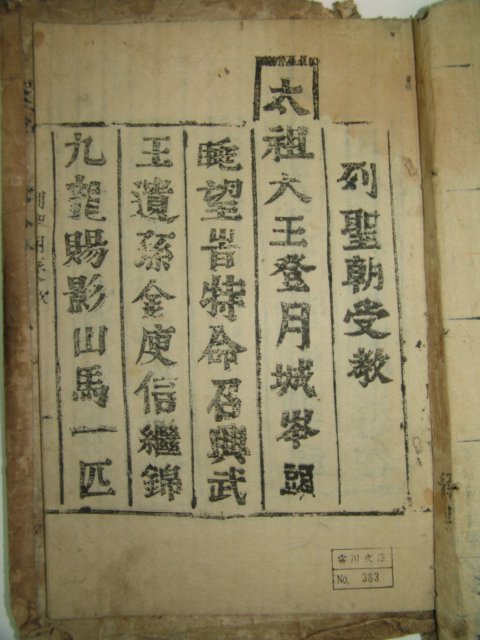 列聖朝受敎
太祖大王登月城岑頭
眺望峕特命召興武
王遺孫金庾信繼錦
九龍賜影山馬一匹
No. 383